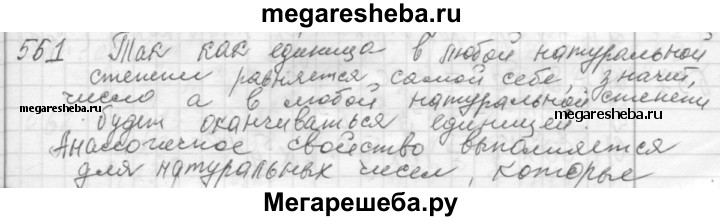 megaresheba.ru
561 Так как единица в любой натуральной
степени равняется самой себе, значит,
число а в любой натуральной степени
megaresheba.ru megaresheba.ru
будет оканчиваться единицей.
Аналогичное свойство выполняется
для натуральных чисел, которые
Мегарешеба.ру